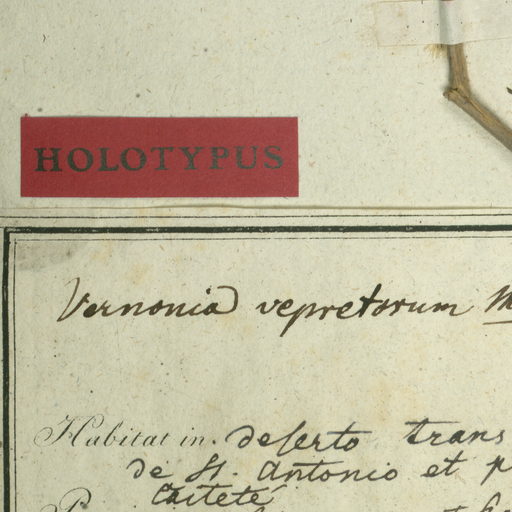 HOLOTYPUS
Vernonia vepretorum M
Habitat in. deserto trans
de St. Antonio et p
Caiteté